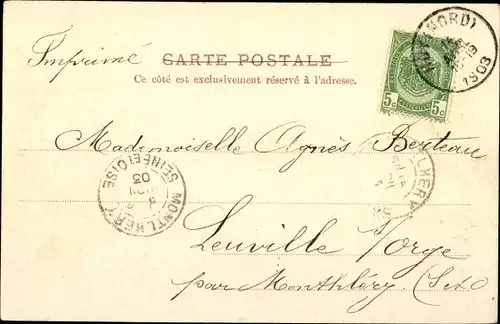 (NORD)
1903
Imprimé
CARTE POSTALE
Ce côté est exclusivement réservé à l'adresse.
5c 5c
Mademoiselle Agnès Berteau
MONTLHERY
SEINE ET OISE
03
Leuville s/Orge
par Monthléry (S.&O.)